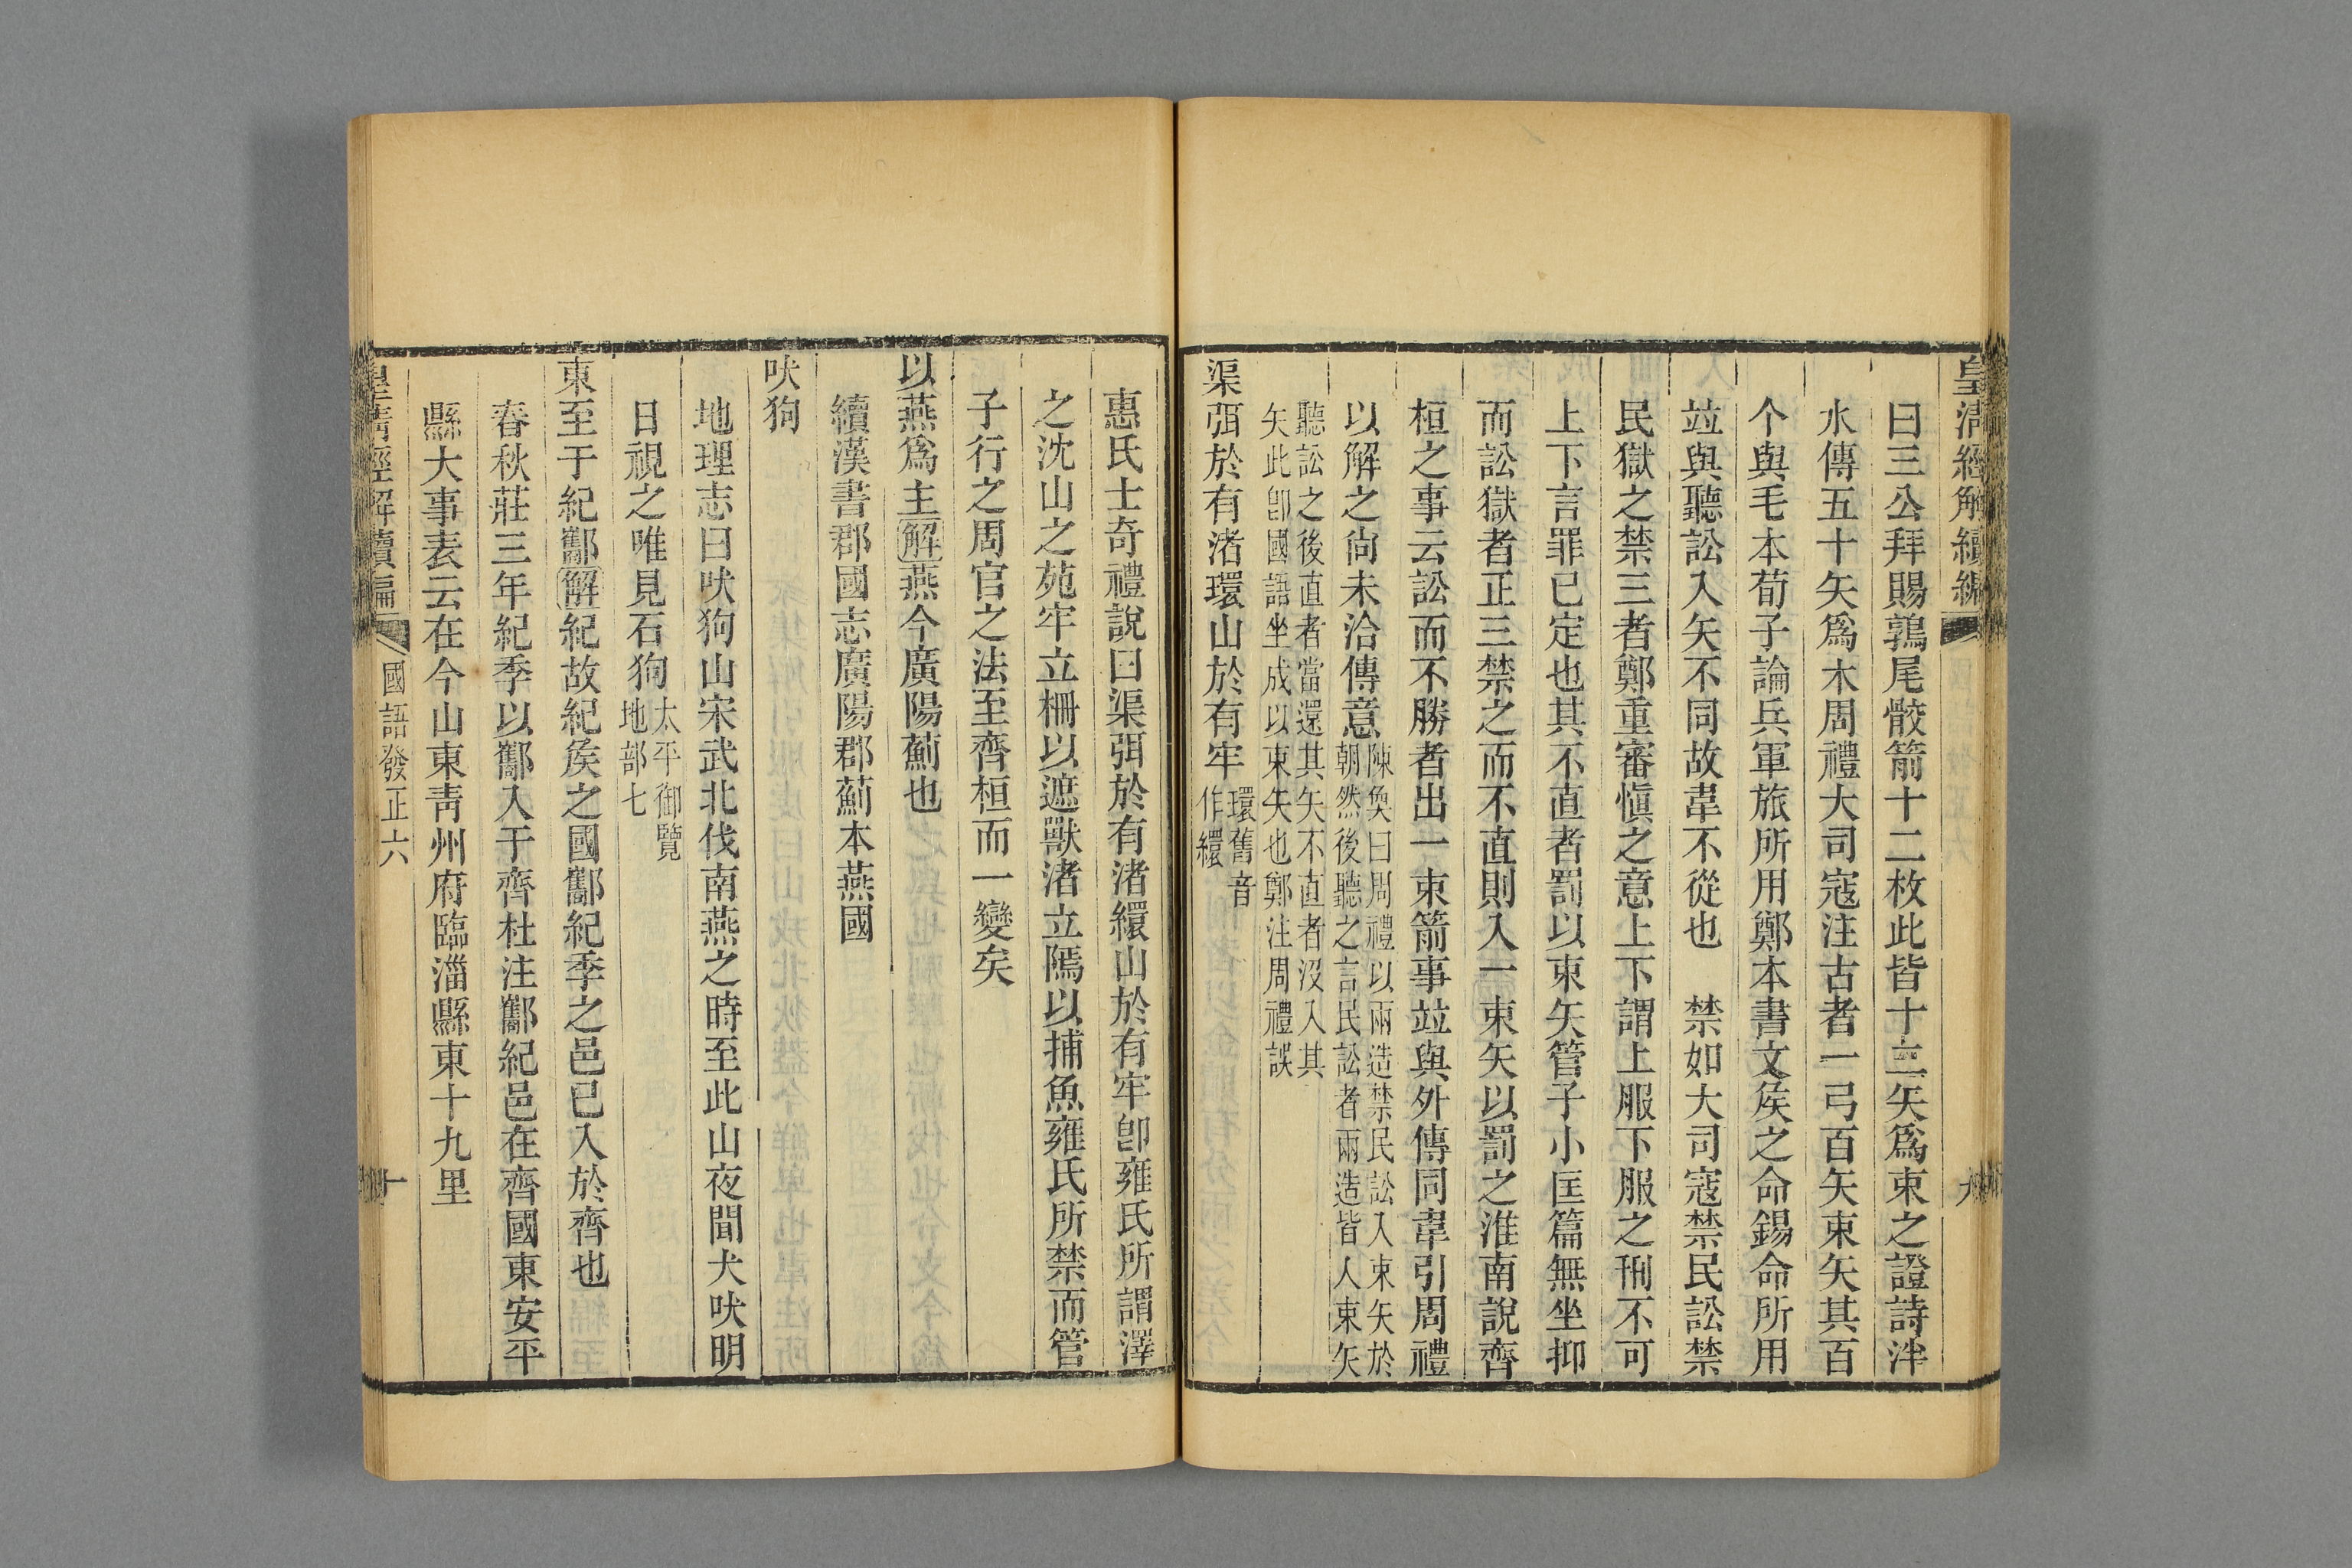 皇清經解續編 九
曰三公拜賜鶉尾骹箭十二枚此皆十二矢爲束之證詩泮
水傳五十矢爲木周禮大司寇注古者一弓百矢束矢其百
个與毛本荀子論兵軍旅所用鄭本書文矦之命錫命所用
竝與聽訟入矢不同故韋不從也　禁如大司寇禁民訟禁
民獄之禁三者鄭重審愼之意上下謂上服下服之刑不可
上下言罪已定也其不直者罰以束矢管子小匡篇無坐抑
而訟獄者正三禁之而不直則入一束矢以罰之淮南說齊
桓之事云訟而不勝者出一束箭事竝與外傳同韋引周禮
以解之尙未洽傳意陳奐曰周禮以兩造禁民訟入束矢於
朝然後聽之言民訟者兩造皆人束矢
聽訟之後直者當還其矢不直者沒入其
矢此卽國語坐成以束矢也鄭注周禮誤
渠弭於有渚環山於有牢環舊音
作繯
惠氏士奇禮說曰渠弭於有渚繯山於有牢卽雍氏所謂澤
之沈山之苑牢立柵以遮獸渚立隔以捕魚雍氏所禁而管
子行之周官之法至齊桓而一變矣
以燕爲主解燕今廣陽薊也
續漢書郡國志廣陽郡薊本燕國
吠狗
地理志曰吠狗山宋武北伐南燕之時至此山夜聞犬吠明
日視之唯見石狗太平御覽
地部七
東至于紀酅解紀故紀矦之國酅紀季之邑已入於齊也
春秋莊三年紀季以酅入于齊杜注酅紀邑在齊國東安平
縣大事表云在今山東靑州府臨淄縣東十九里
皇清經解續編 國語發正六 十